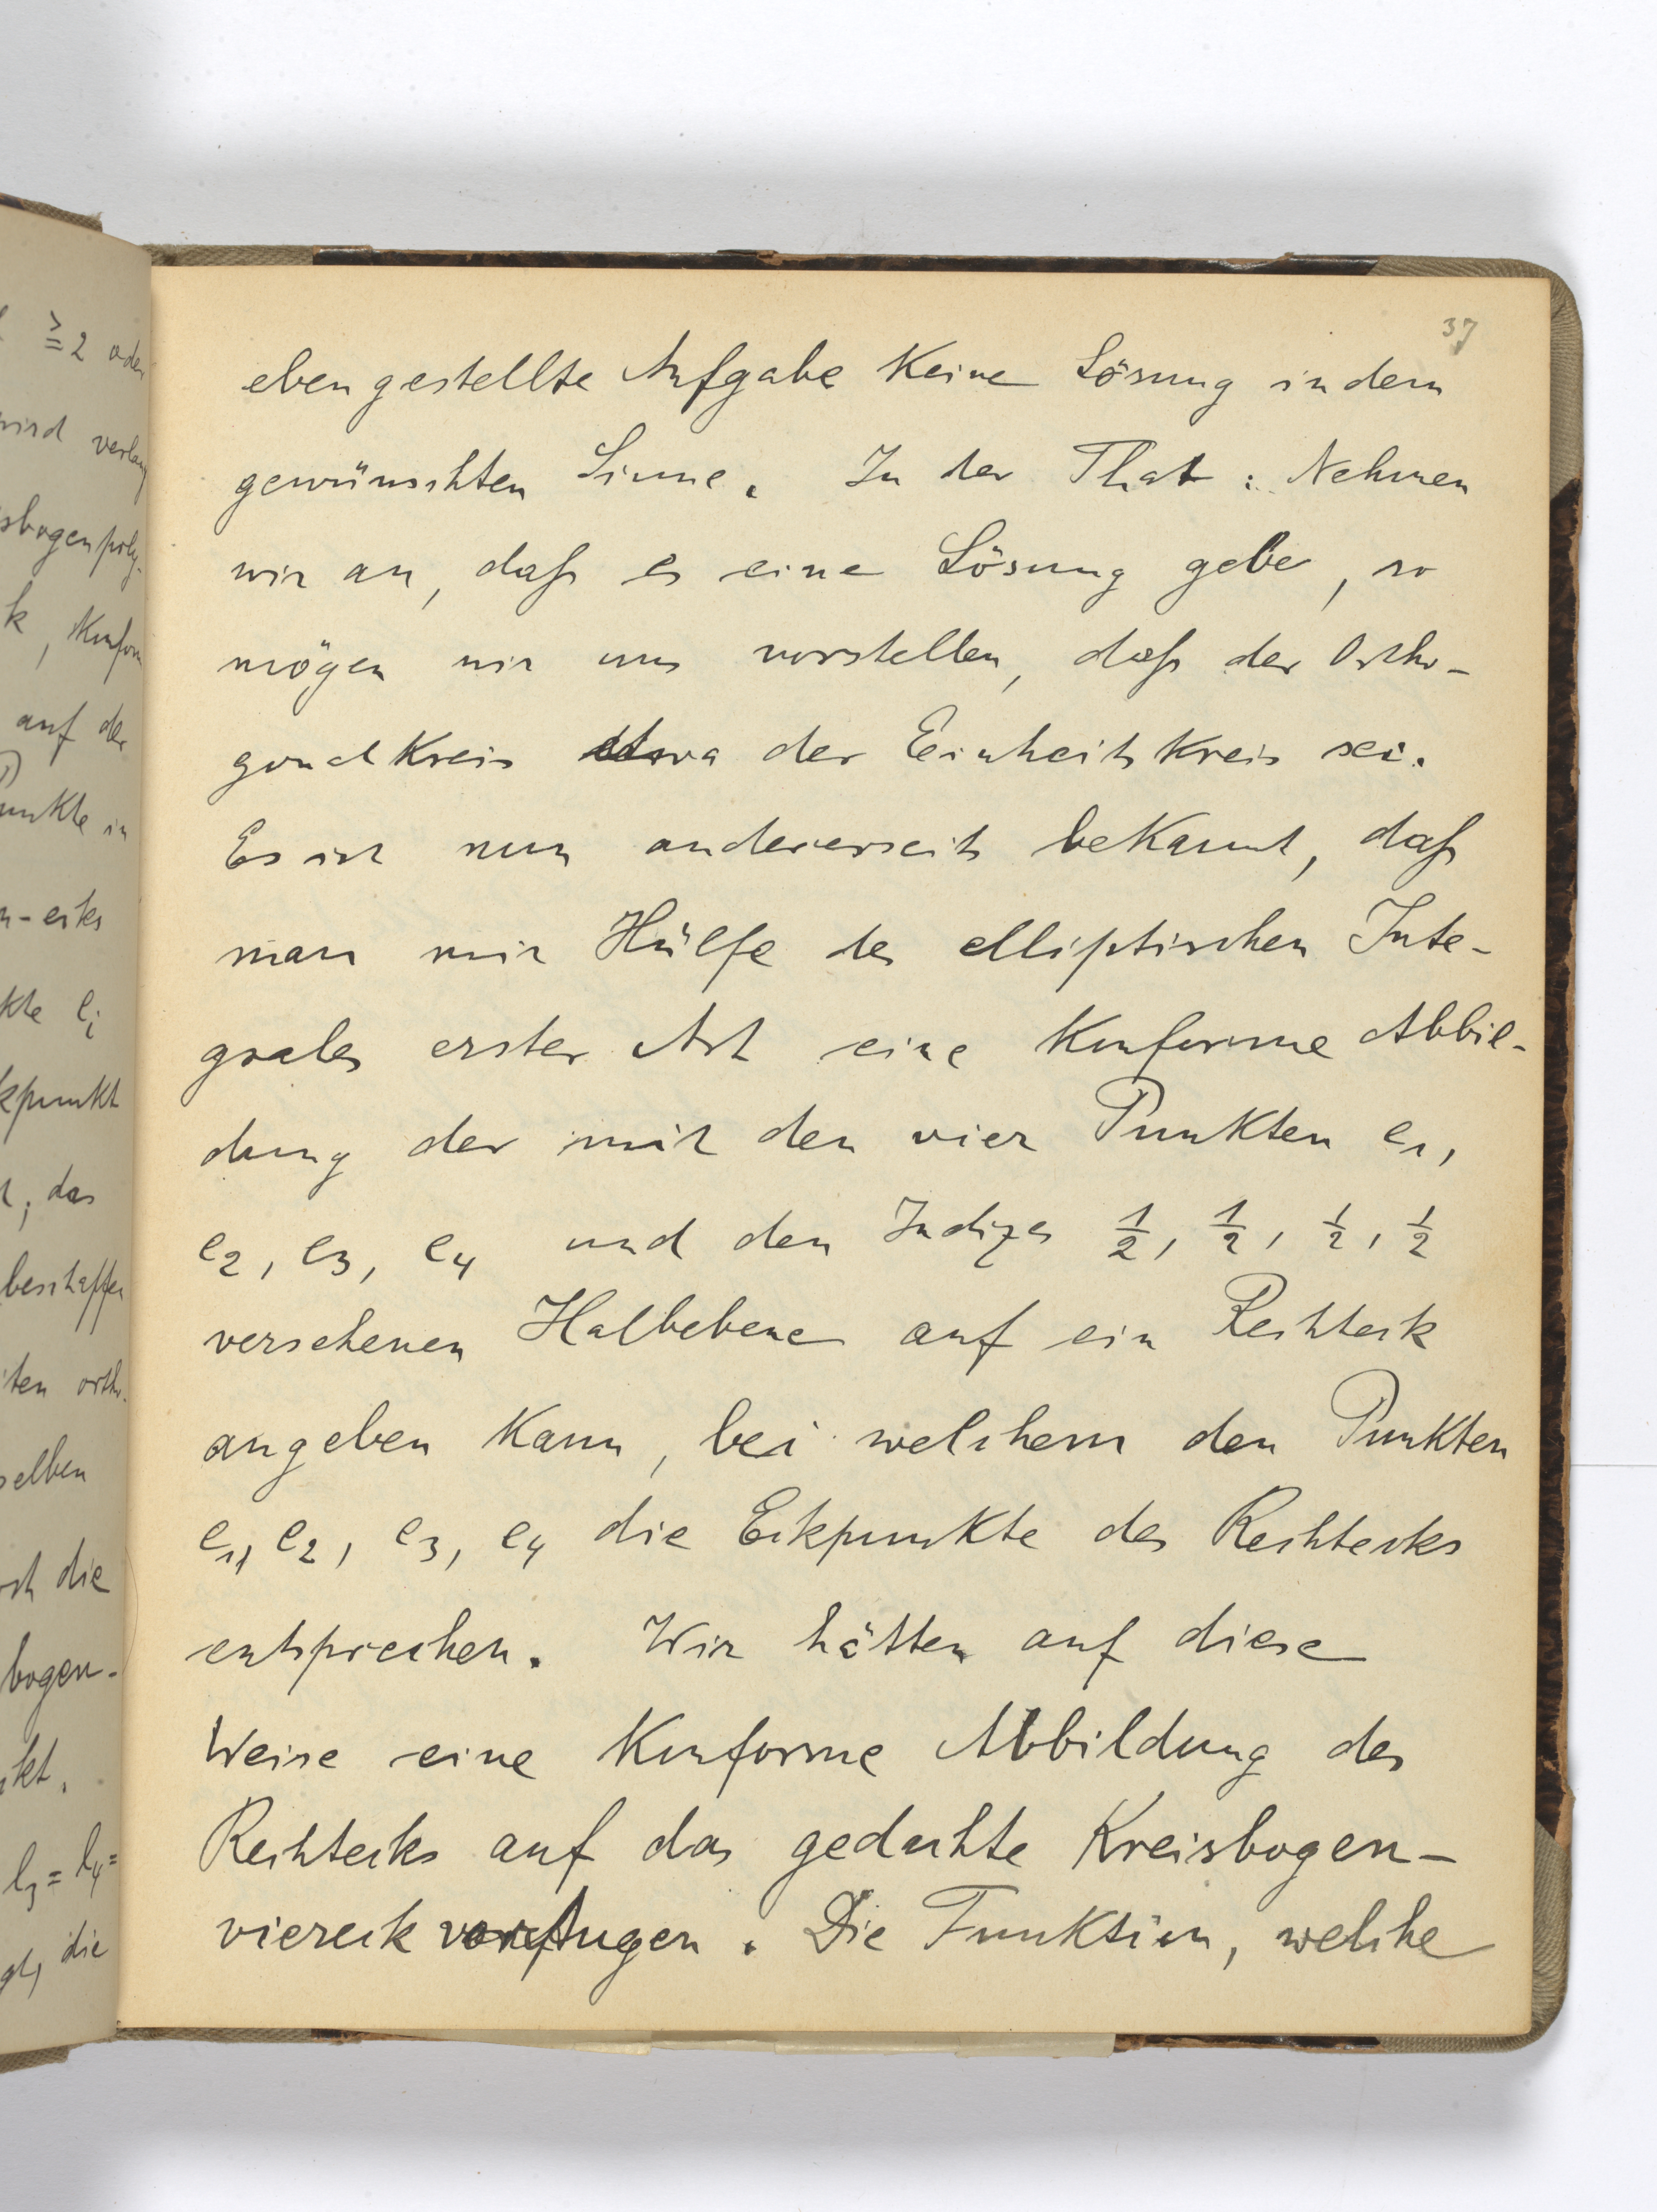 37
eben gestellte Aufgabe keine Lösung in dem
gewünschten Sinne. In der That: Nehmen
wir an, daß es eine Lösung gebe, so
mögen wir uns vorstellen, daß der Ortho-
gonalkreis etwa der Einheitskreis sei.
Es ist nun andererseits bekannt, daß
man mit Hülfe des elliptischen Inte-
grales erster Art eine konforme Abbil-
dung der mit den vier Punkten e₁,
e₂, e₃, e₄ und den Indizes ½, ½, ½, ½
versehenen Halbebene auf ein Rechteck
angeben kann, bei welchem den Punkten
e₁, e₂, e₃, e₄ die Eckpunkte des Rechtecks
entsprechen. Wir hätten auf diese
Weise eine konforme Abbildung des
Rechtecks auf das gedachte Kreisbogen-
viereck vor Augen. Die Funktion, welche